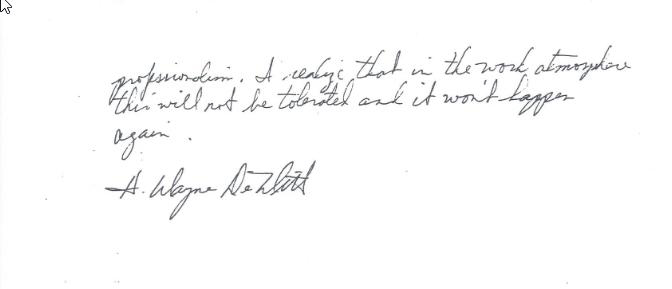 professionalism. I realize that in the work atmosphere
this will not be tolerated and it won't happen
again.
H. Wayne DeWitt